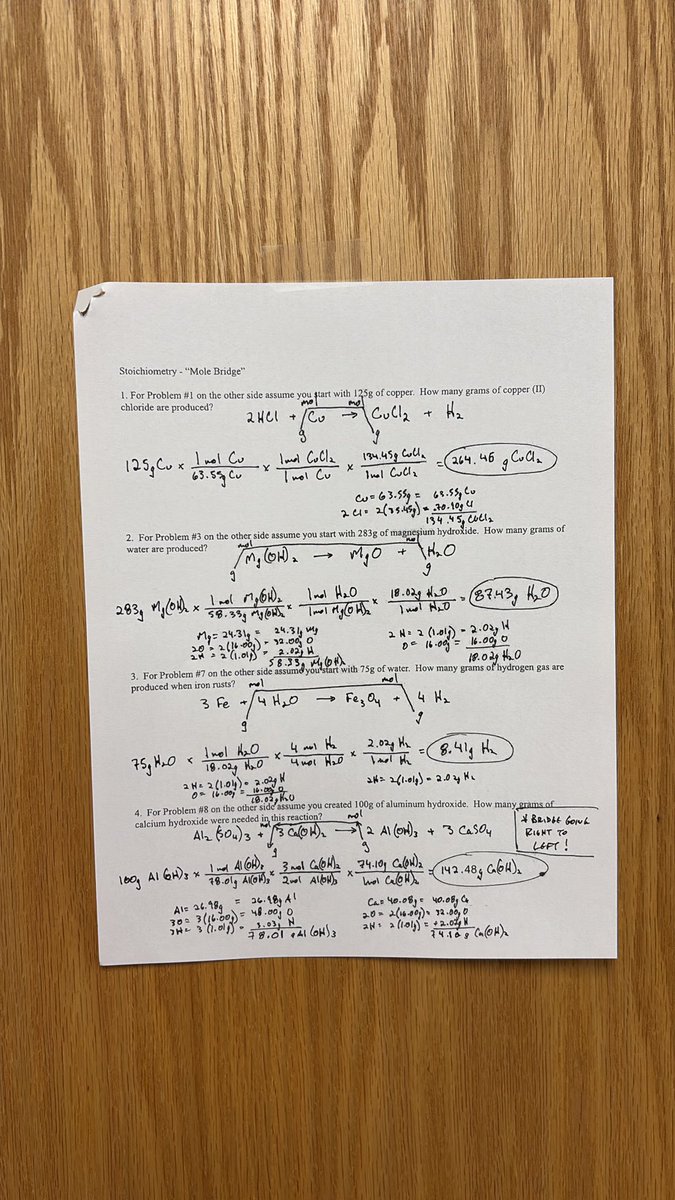 Stoichiometry - "Mole Bridge"
1. For Problem #1 on the other side assume you start with 125g of copper. How many grams of copper (II)
chloride are produced?
mol mol
2HCl + Cu → CuCl₂ + H₂
g g
125g Cu × 1 mol Cu / 63.55g Cu × 1 mol CuCl₂ / 1 mol Cu × 134.45g CuCl₂ / 1 mol CuCl₂ = 264.46 g CuCl₂
Cu = 63.55g = 63.55g Cu
2 Cl = 2(35.45g) = 70.90g Cl
134.45g CuCl₂
2. For Problem #3 on the other side assume you start with 283g of magnesium hydroxide. How many grams of
water are produced?
mol mol
Mg(OH)₂ → MgO + H₂O
g g
283g Mg(OH)₂ × 1 mol Mg(OH)₂ / 58.33g Mg(OH)₂ × 1 mol H₂O / 1 mol Mg(OH)₂ × 18.02g H₂O / 1 mol H₂O = 87.43g H₂O
Mg = 24.31g = 24.31g Mg
2O = 2(16.00g) = 32.00g O
2H = 2(1.01g) = 2.02g H
58.33g Mg(OH)₂
2 H = 2(1.01g) = 2.02g H
O = 16.00g = 16.00g O
18.02g H₂O
3. For Problem #7 on the other side assume you start with 75g of water. How many grams of hydrogen gas are
produced when iron rusts?
mol mol
3 Fe + 4 H₂O → Fe₃O₄ + 4 H₂
g g
75g H₂O × 1 mol H₂O / 18.02g H₂O × 4 mol H₂ / 4 mol H₂O × 2.02g H₂ / 1 mol H₂ = 8.41g H₂
2H = 2(1.01g) = 2.02g H
O = 16.00g = 16.00g O
18.02g H₂O
2H = 2(1.01g) = 2.02g H₂
4. For Problem #8 on the other side assume you created 100g of aluminum hydroxide. How many grams of
calcium hydroxide were needed in this reaction?
mol mol
Al₂(SO₄)₃ + 3 Ca(OH)₂ → 2 Al(OH)₃ + 3 CaSO₄
g g
* BRIDGE GOING
RIGHT TO
LEFT!
100g Al(OH)₃ × 1 mol Al(OH)₃ / 78.01g Al(OH)₃ × 3 mol Ca(OH)₂ / 2 mol Al(OH)₃ × 74.10g Ca(OH)₂ / 1 mol Ca(OH)₂ = 142.48g Ca(OH)₂
Al = 26.98g = 26.98g Al
3O = 3(16.00g) = 48.00g O
3H = 3(1.01g) = 3.03g H
78.01 g Al(OH)₃
Ca = 40.08g = 40.08g Ca
2O = 2(16.00g) = 32.00g O
2H = 2(1.01g) = +2.02g H
74.10 g Ca(OH)₂